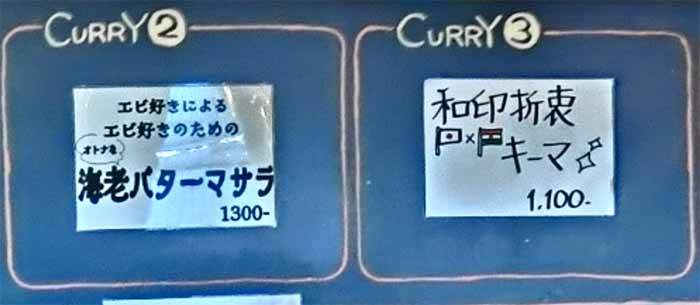 CURRY②
エビ好きによる
エビ好きのための
オトナな
海老バターマサラ
1300-
CURRY③
和印折衷
🇯🇵×🇮🇳キーマ
1.100-